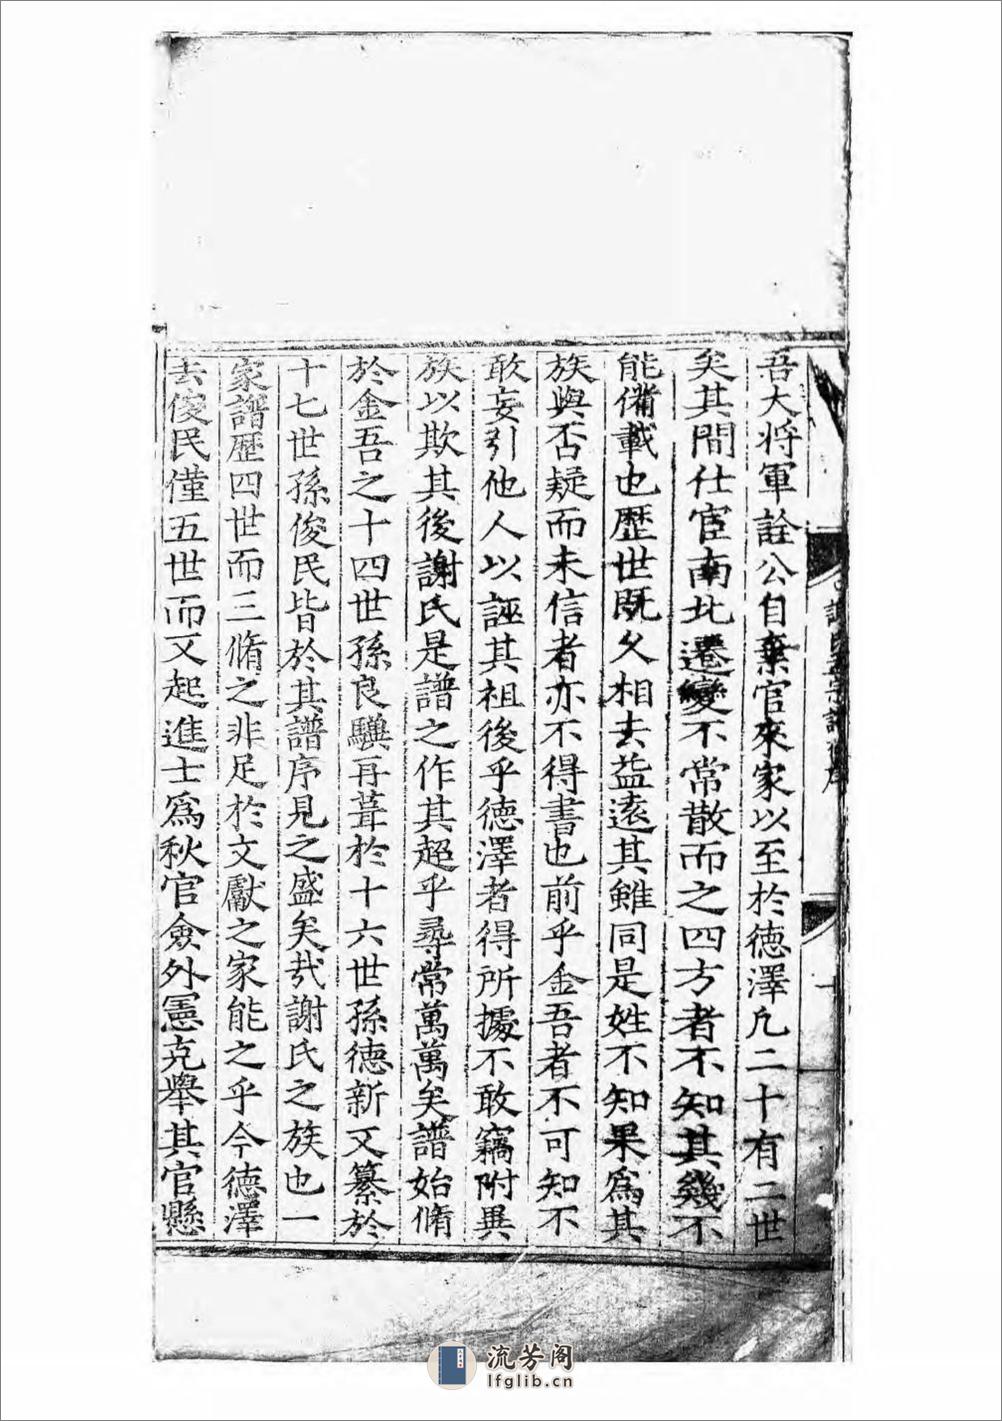 吾大将軍詮公自棄官來家以至扵德澤凢二十有二世
矣其間仕宦南北遷變不常散而之四方者不知其幾不
能備載也歷世既久相去益逺其雖同是姓不知果爲其
族與否疑而未信者亦不得書也前乎金吾者不可知不
敢妄引他人以誣其祖後乎德澤者得所據不敢竊附異
族以欺其後謝氏是譜之作其超乎尋常萬萬矣譜始脩
於金吾之十四世孫良驥再葺於十六世孫德新又纂於
十七世孫俊民皆於其譜序見之盛矣㢤謝氏之族也一
家譜歷四世而三脩之非足於文獻之家能之乎今德澤
去俊民僅五世而又起進士爲秋官僉外憲克舉其官懸
流芳阁
lfglib.cn